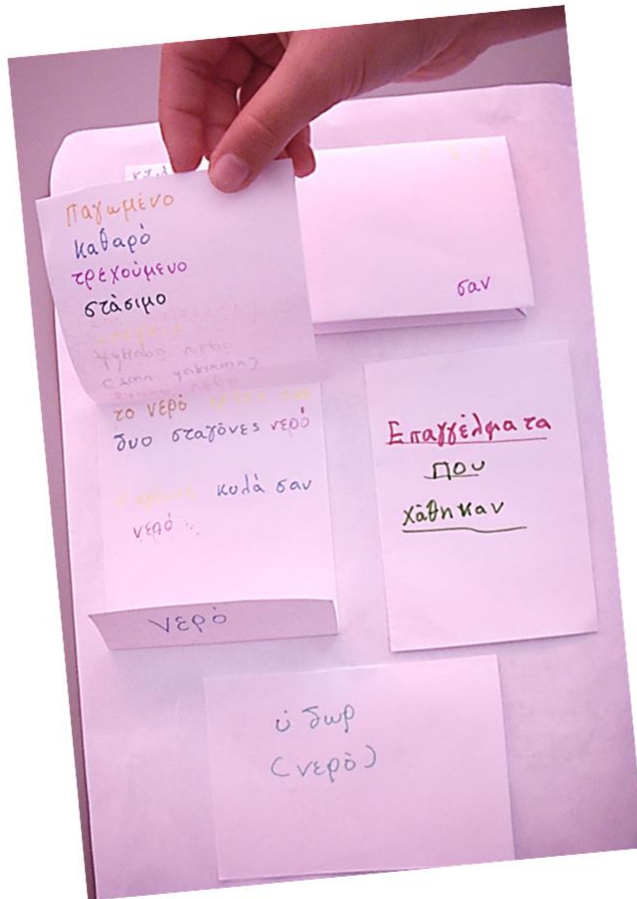 παγωμένο
καθαρό
τρεχούμενο
στάσιμο
σαν
το νερό
δυο σταγόνες νερό
κυλά σαν
νερό
νερό
Επαγγέλματα
που
χάθηκαν
ύδωρ
(νερό)